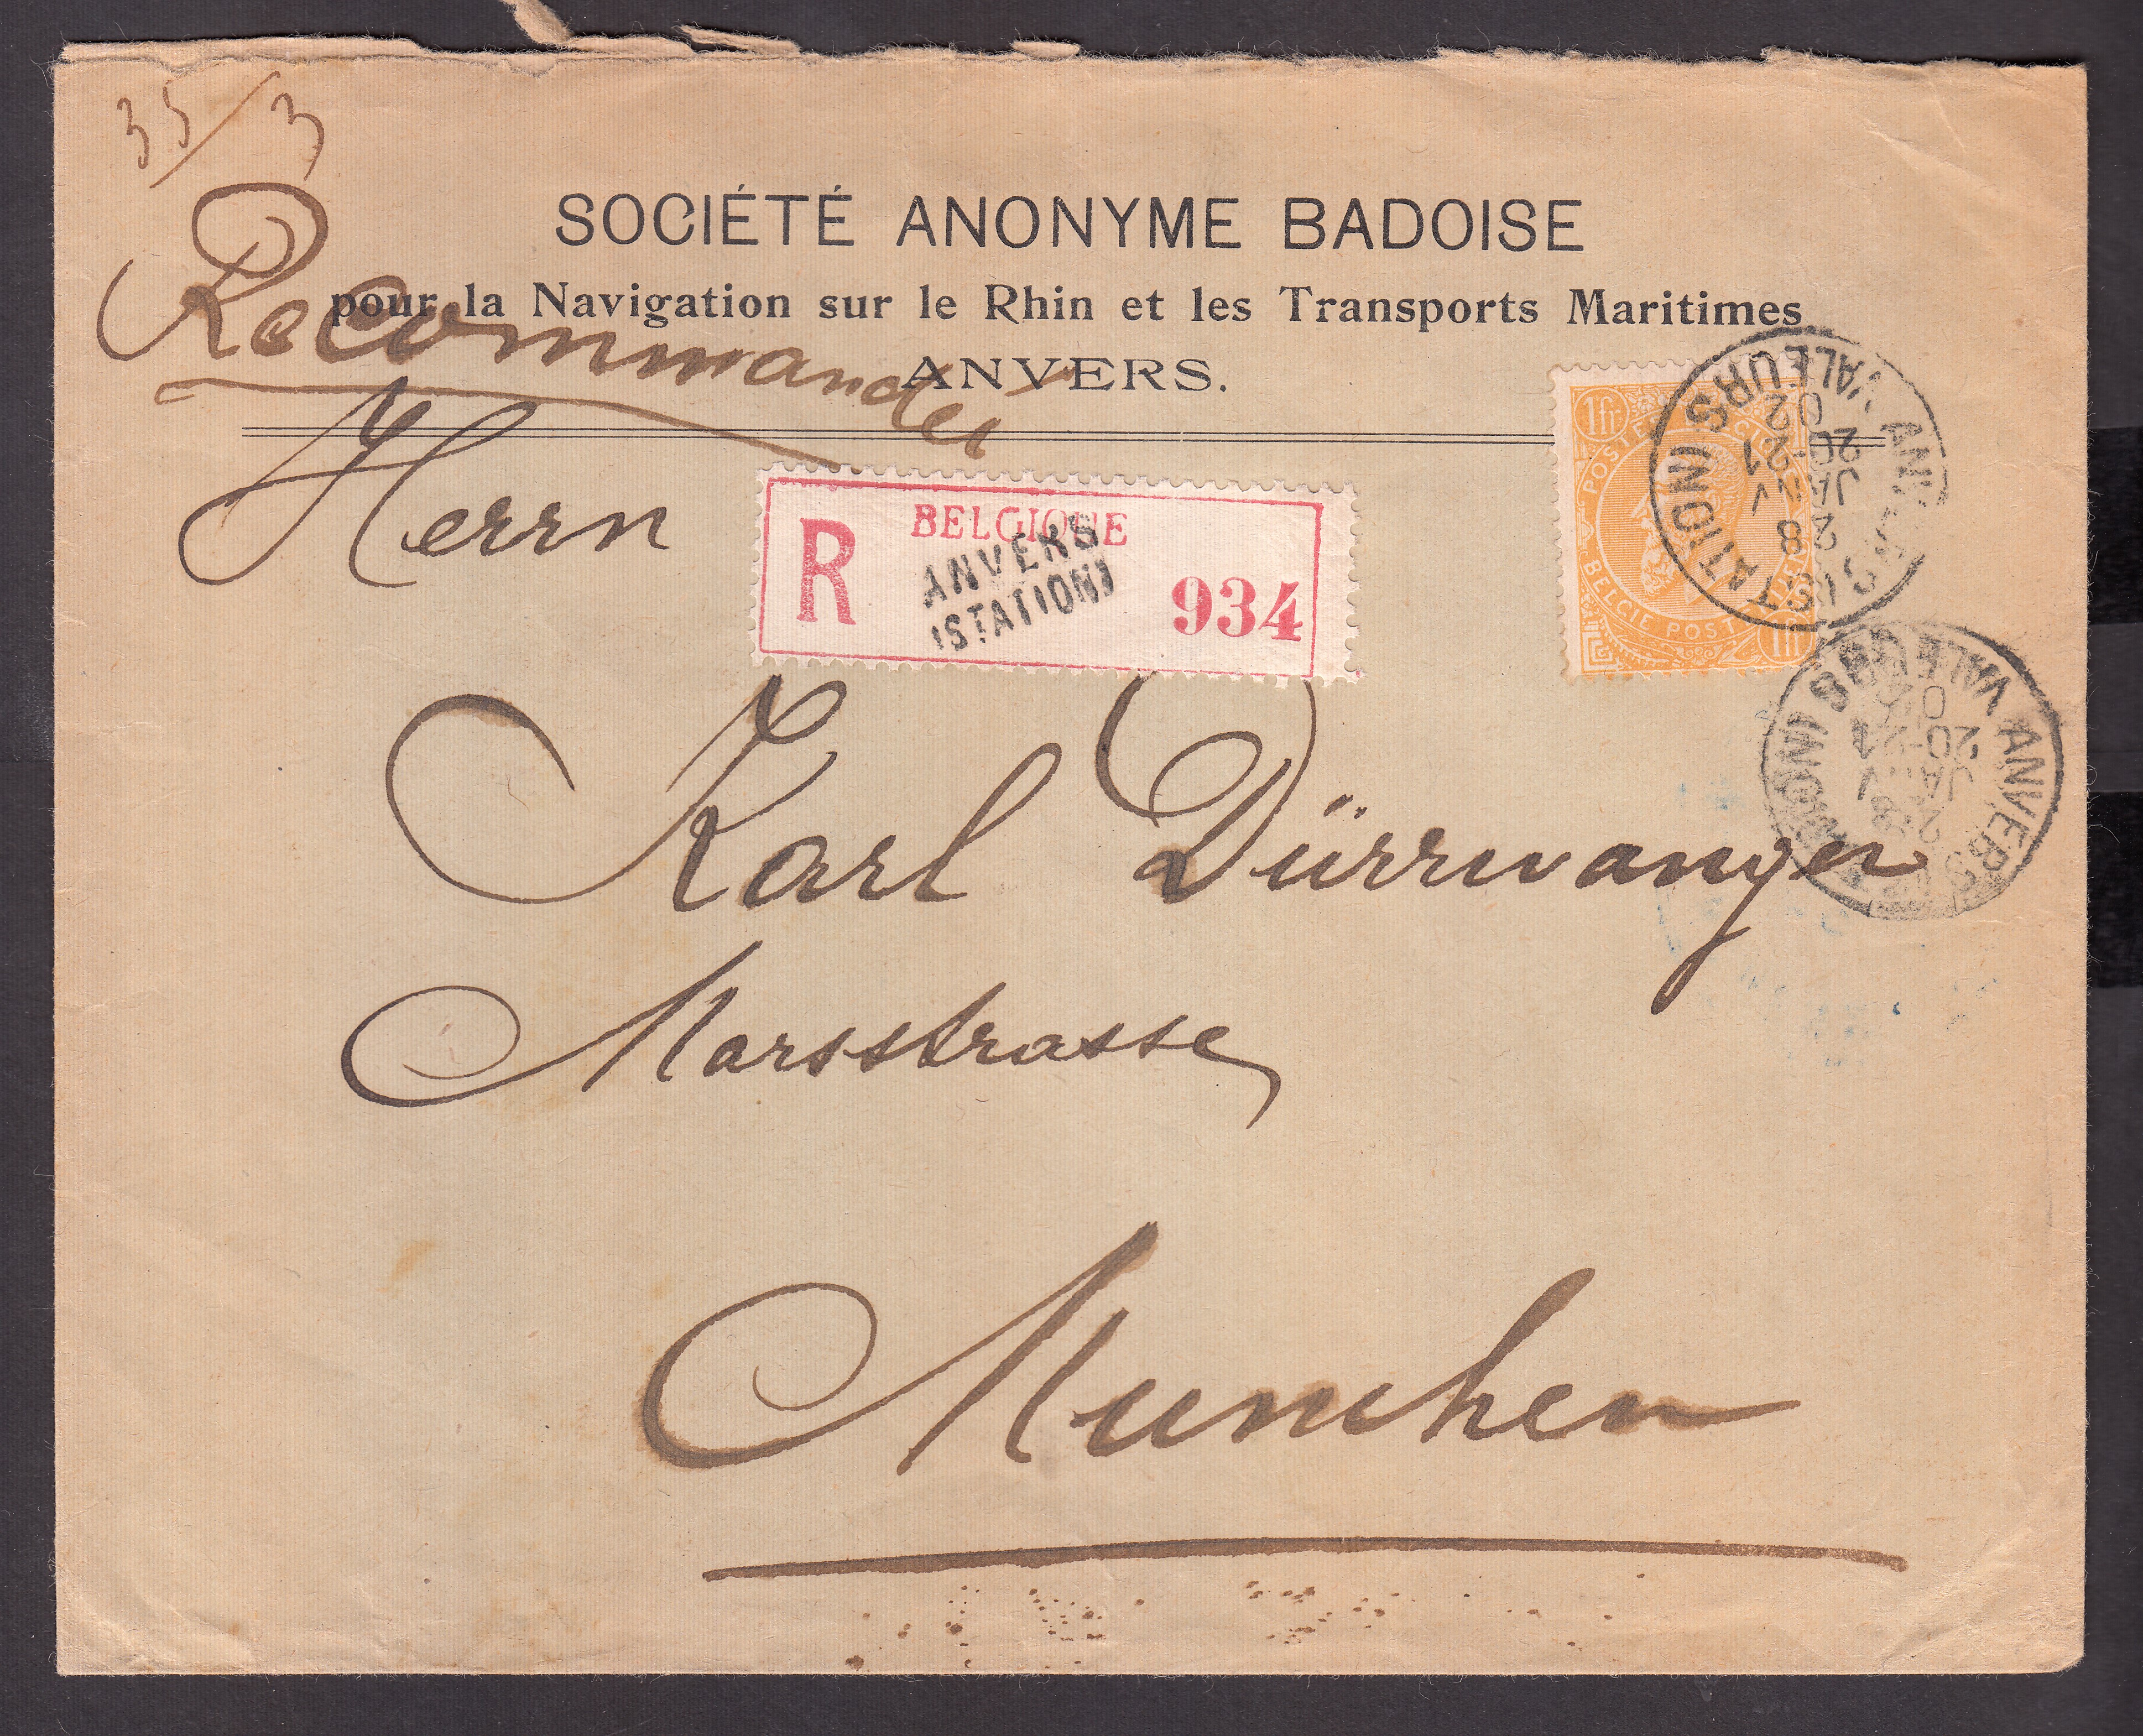 35/3
SOCIÉTÉ ANONYME BADOISE
pour la Navigation sur le Rhin et les Transports Maritimes
ANVERS.
Recommandée
Herrn
R BELGIQUE 934
ANVERS
(STATION)
1fr POSTERIJEN BELGIE POSTES 1fr
ANVERS (STATION) VALEURS
28 JANV 20-21 02
ANVERS (STATION) VALEURS
28 JANV 20-21 02
Karl Dürrwanger
Marsstrasse
Munchen